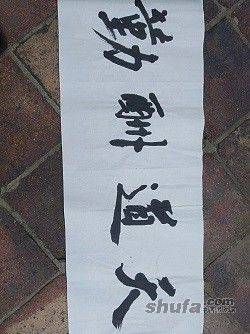 天道酬勤
shufa.com